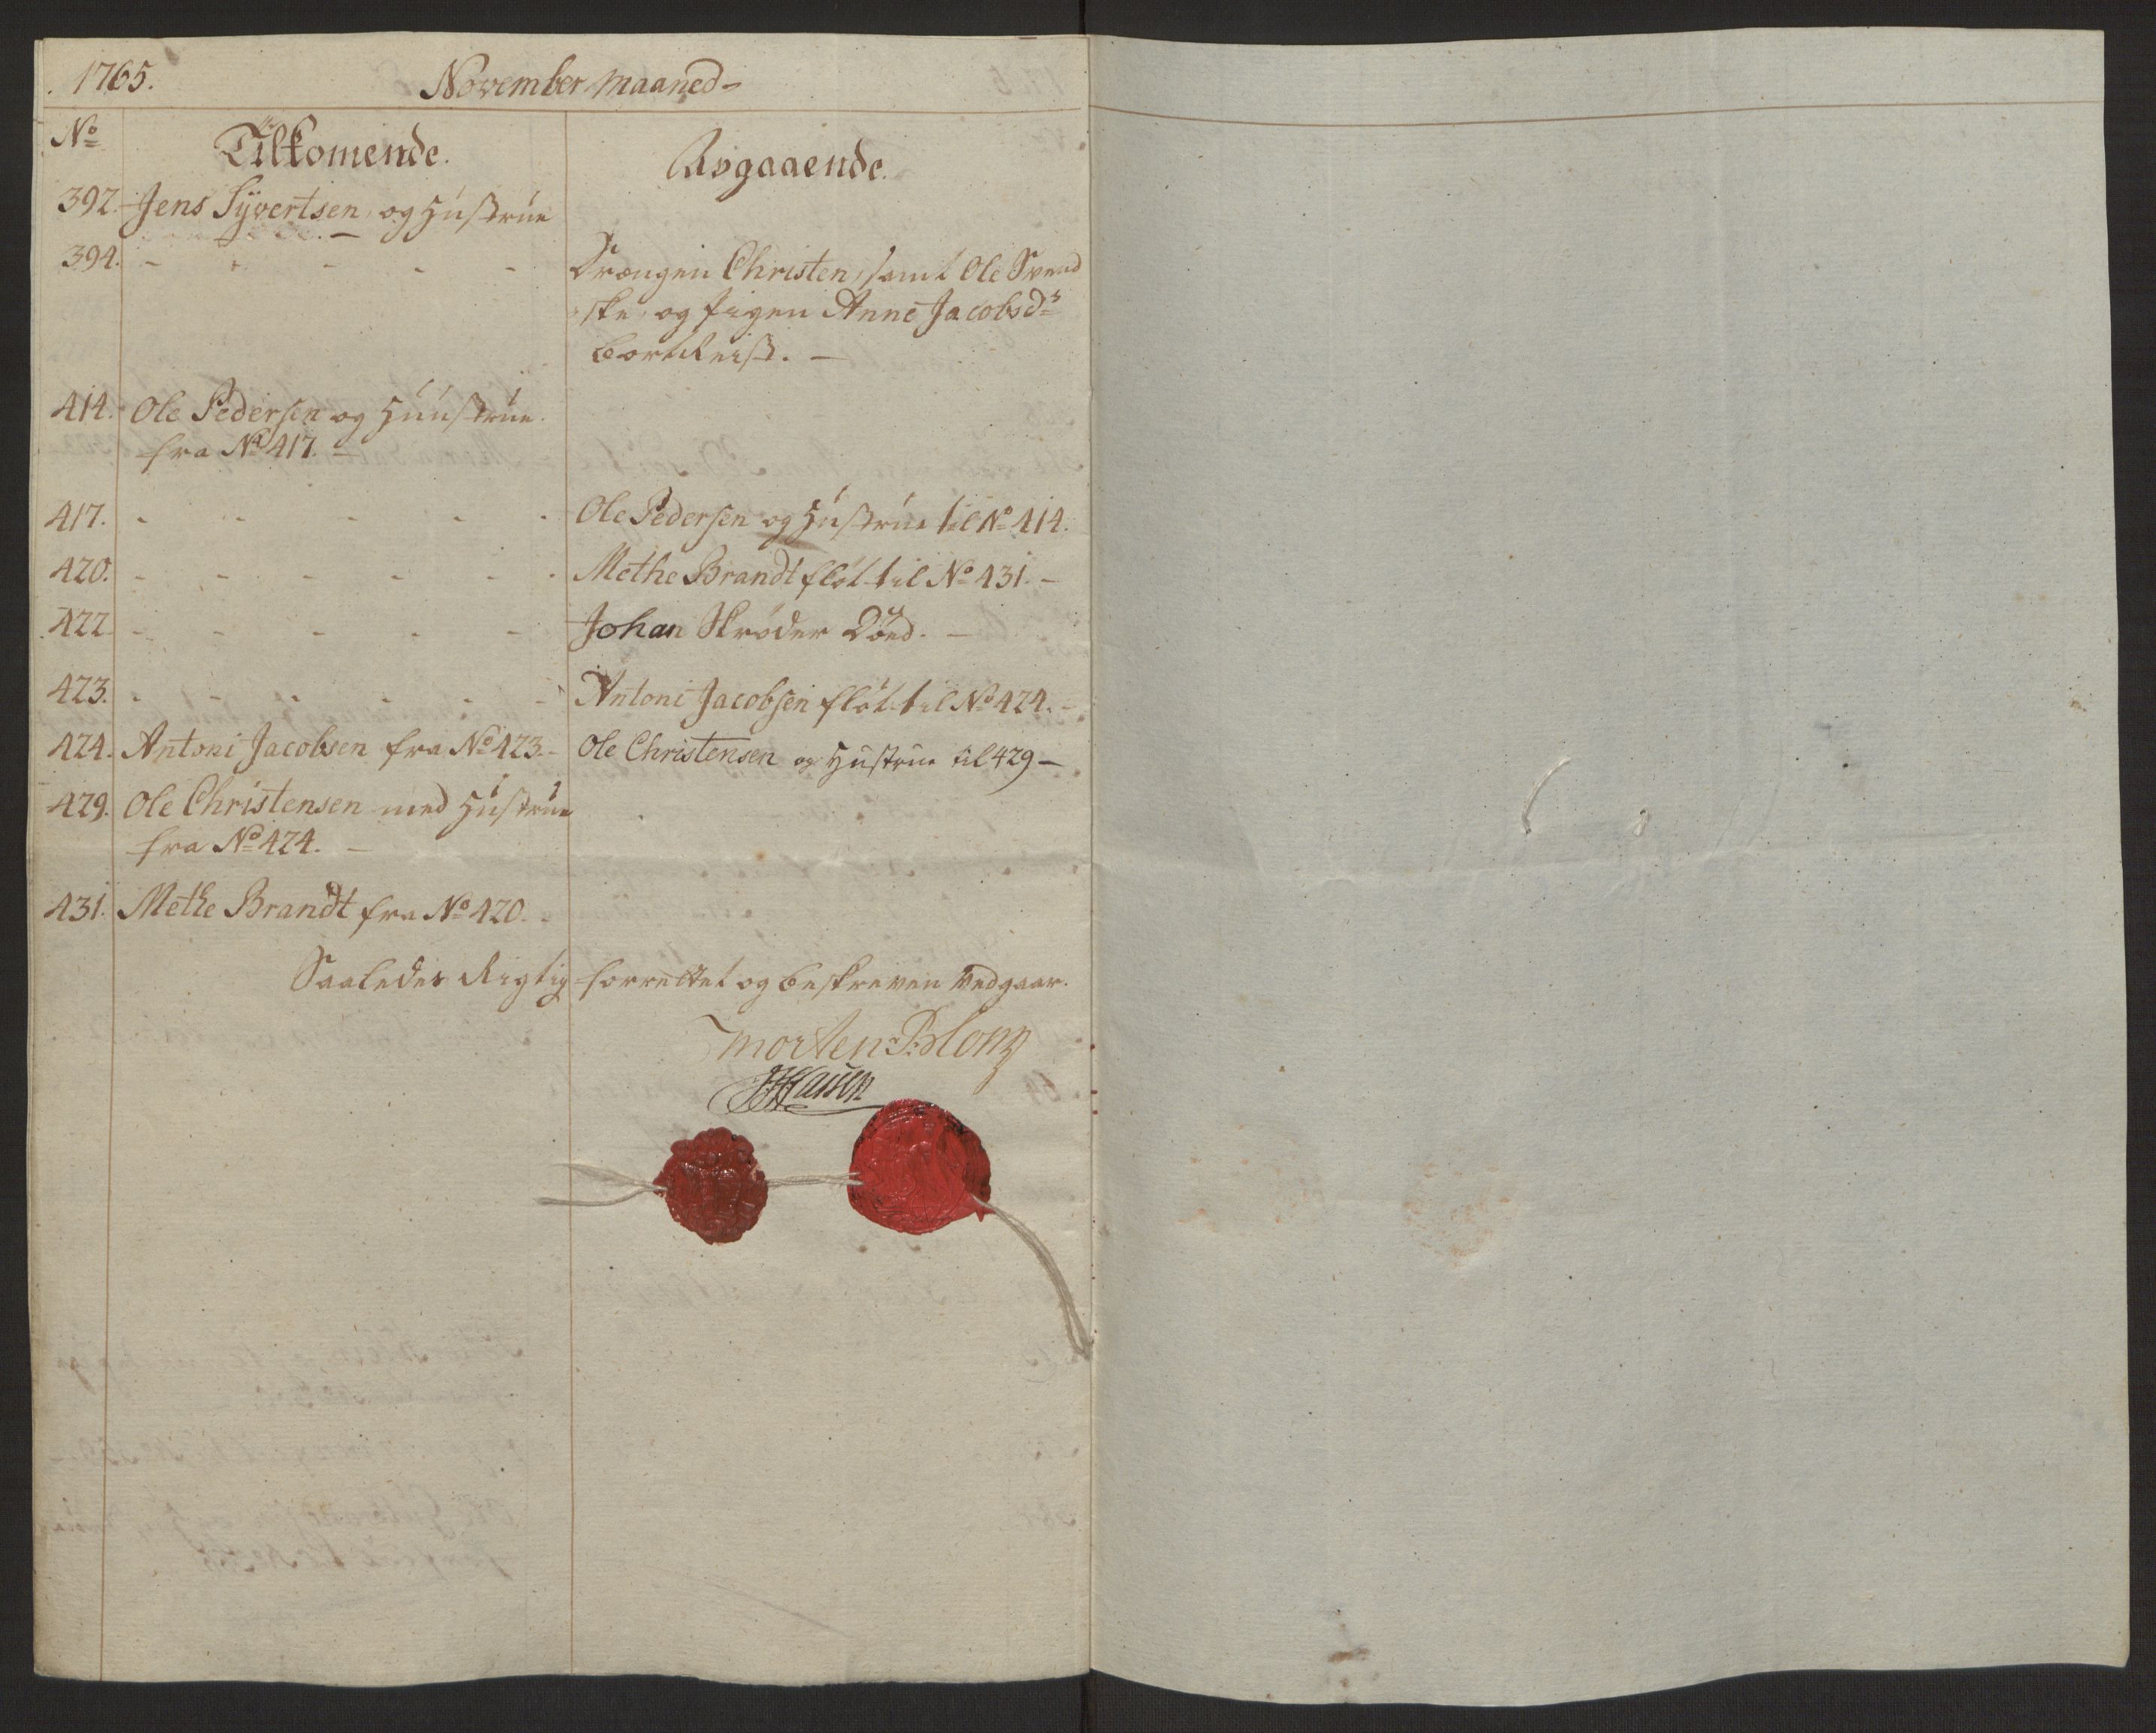 1765. November maaned-
No Tilkomende. Avgaaende.
392. Jens Syvertsen og Hustrue
394. - - - - - Drængen Christen, samt Ole Svend
ske, og Pigen Anne Jacobsd:
bortReist. -
414. Ole Pedersen og Huustrue
fra No 417. -
417. - - - - - Ole Pedersen og Hustrue til No 414.
420. - - - - - - Methe Brandt fløt til No 431. -
422. - - - - - Johan Skrøder Død. -
423. - - - - - - Antoni Jacobsen fløt til No 424. -
424. Antoni Jacobsen fra No 423. - Ole Christensen og Hustrue til 429 -
429. Ole Christensen med Hustrue
fra No 424. -
431. Methe Brandt fra No 420. -
Saaledes Rigtig forrettet og beskreven vedgaar.
Morten
JHHansen